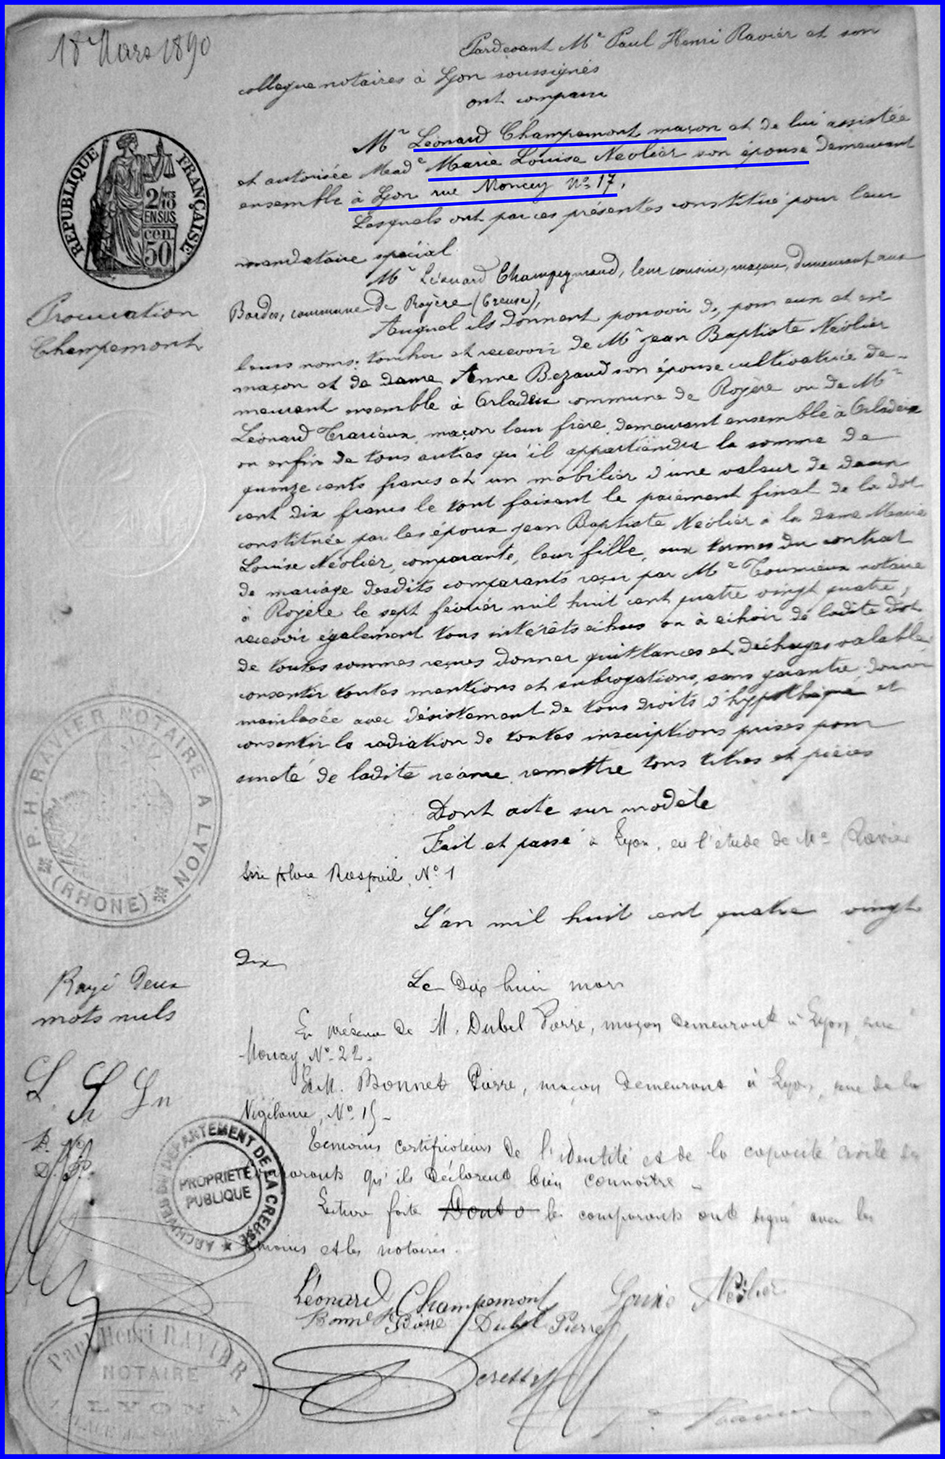 18 Mars 1890
Pardevant Me Paul Henri Ravier et son
collegue notaires à Lyon soussignés
ont comparu
Mr Léonard Champemont maçon et de lui assistée
et autorisée Made Marie Louise Néolier son épouse demeurant
ensemble à Lyon rue Moncey No 17.
Lesquels ont par ces présentes constitué pour leur
mandataire spécial
Mr Léonard Champeymaud, leur cousin, maçon, demeurant aux
Bordes, commune de Royère (Creuse),
Auquel ils donnent pouvoir de, pour eux et en
leurs noms: toucher et recevoir de Mr Jean Baptiste Néolier
maçon et de dame Anne Bezaud son épouse cultivatrice de-
meurant ensemble à Arladeix commune de Royère ou de Mr
Léonard Trarieux, maçon leur frère demeurant ensemble à Arladeix
ou enfin de tous autres qu'il appartiendra la somme de
quinze cents francs et un mobilier d'une valeur de deux
cent dix francs le tout faisant le paiement final de la dot
constituée par les époux Jean Baptiste Néolier à la dame Marie
Louise Néolier, comparante, leur fille, aux termes du contrat
de mariage desdits comparants reçu par Me Toumieux notaire
à Royère le sept février mil huit cent quatre vingt quatre,
recevoir également tous intérêts échus ou à échoir de ladite dot
de toutes sommes reçues donner quittances et décharges valables
consentir toutes mentions et subrogations, sans garantie, donner
mainlevée avec désistement de tous droits d'hypothèque et
consentir la radiation de toutes inscriptions prises pour
sureté de ladite créance, remettre tous titres et pièces
Dont acte sur modèle
Fait et passé à Lyon, en l'étude de Me Ravier
Sise place Raspail, No 1
L'an mil huit cent quatre vingt
Dix
Le Dix huit mars
En présence de M. Dubel Pierre, maçon demeurant à Lyon, rue
Moncey No 22.
Et M. Bonnet Pierre, maçon demeurant à Lyon, rue de la
Vigilance, No 15-
Témoins certificateurs de l'identité et de la capacité civile des
comparants qu'ils déclarent bien connaître -
Lecture faite les comparants ont signé avec les
témoins et les notaires.
Léonard Champemont Louise Néolier
Bonnet Pierre Dubel Pierre
RÉPUBLIQUE FRANÇAISE
2/10
EN SUS
cen
50
Procuration
Champemont
P. H. RAVIER NOTAIRE A LYON
(RHONE)
Rayé deux
mots nuls
ARCHIVES DU DÉPARTEMENT DE LA CREUSE
PROPRIÉTÉ
PUBLIQUE
Paul Henri RAVIER
NOTAIRE
LYON